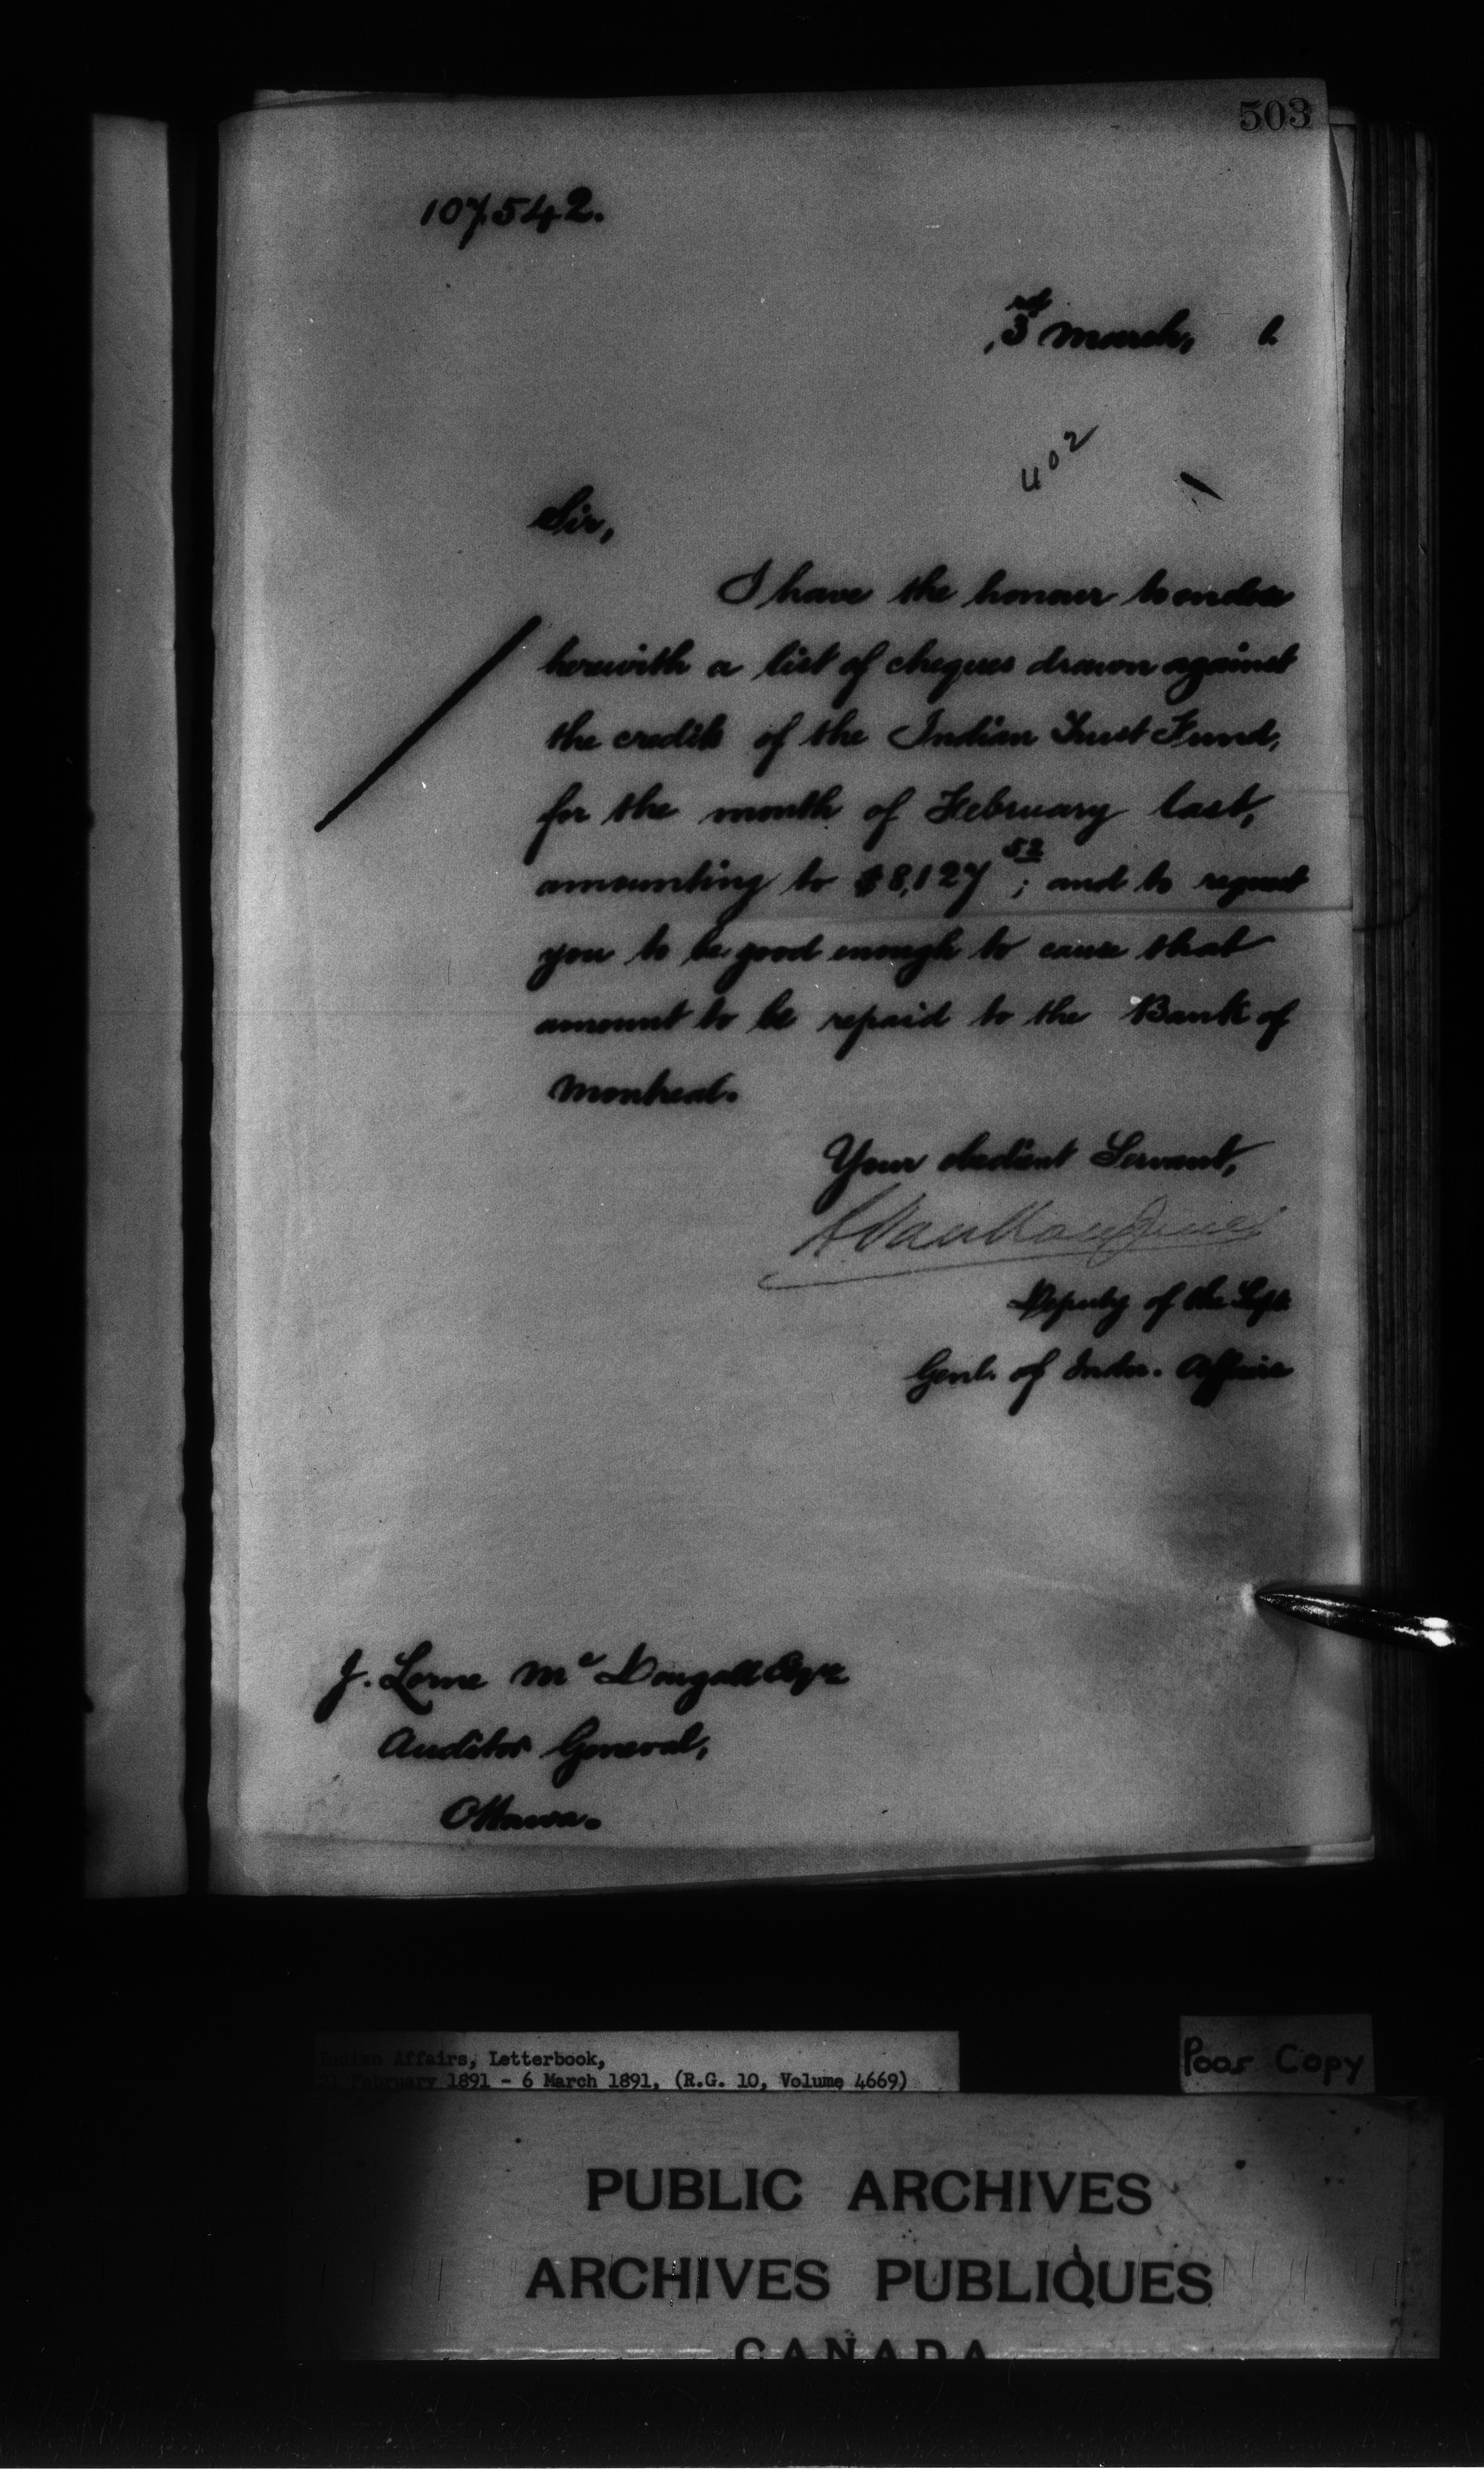 503
107,542.
3rd March, 1.
402
Sir,
I have the honour to enclose
herewith a list of cheques drawn against
the credit of the Indian Trust Fund,
for the month of February last,
amounting to $8,127 52; and to request
you to be good enough to cause that
amount to be repaid to the Bank of
Montreal.
Your obedient Servant,
L. Vankoughnet
Deputy of the Supt.
Genl. of Indn. Affairs
J. Lorne Mc Dougall Esqre
Auditor General,
Ottawa.
Indian Affairs, Letterbook,
21 February 1891 - 6 March 1891, (R.G. 10, Volume 4669)
Poor Copy
PUBLIC ARCHIVES
ARCHIVES PUBLIQUES
CANADA